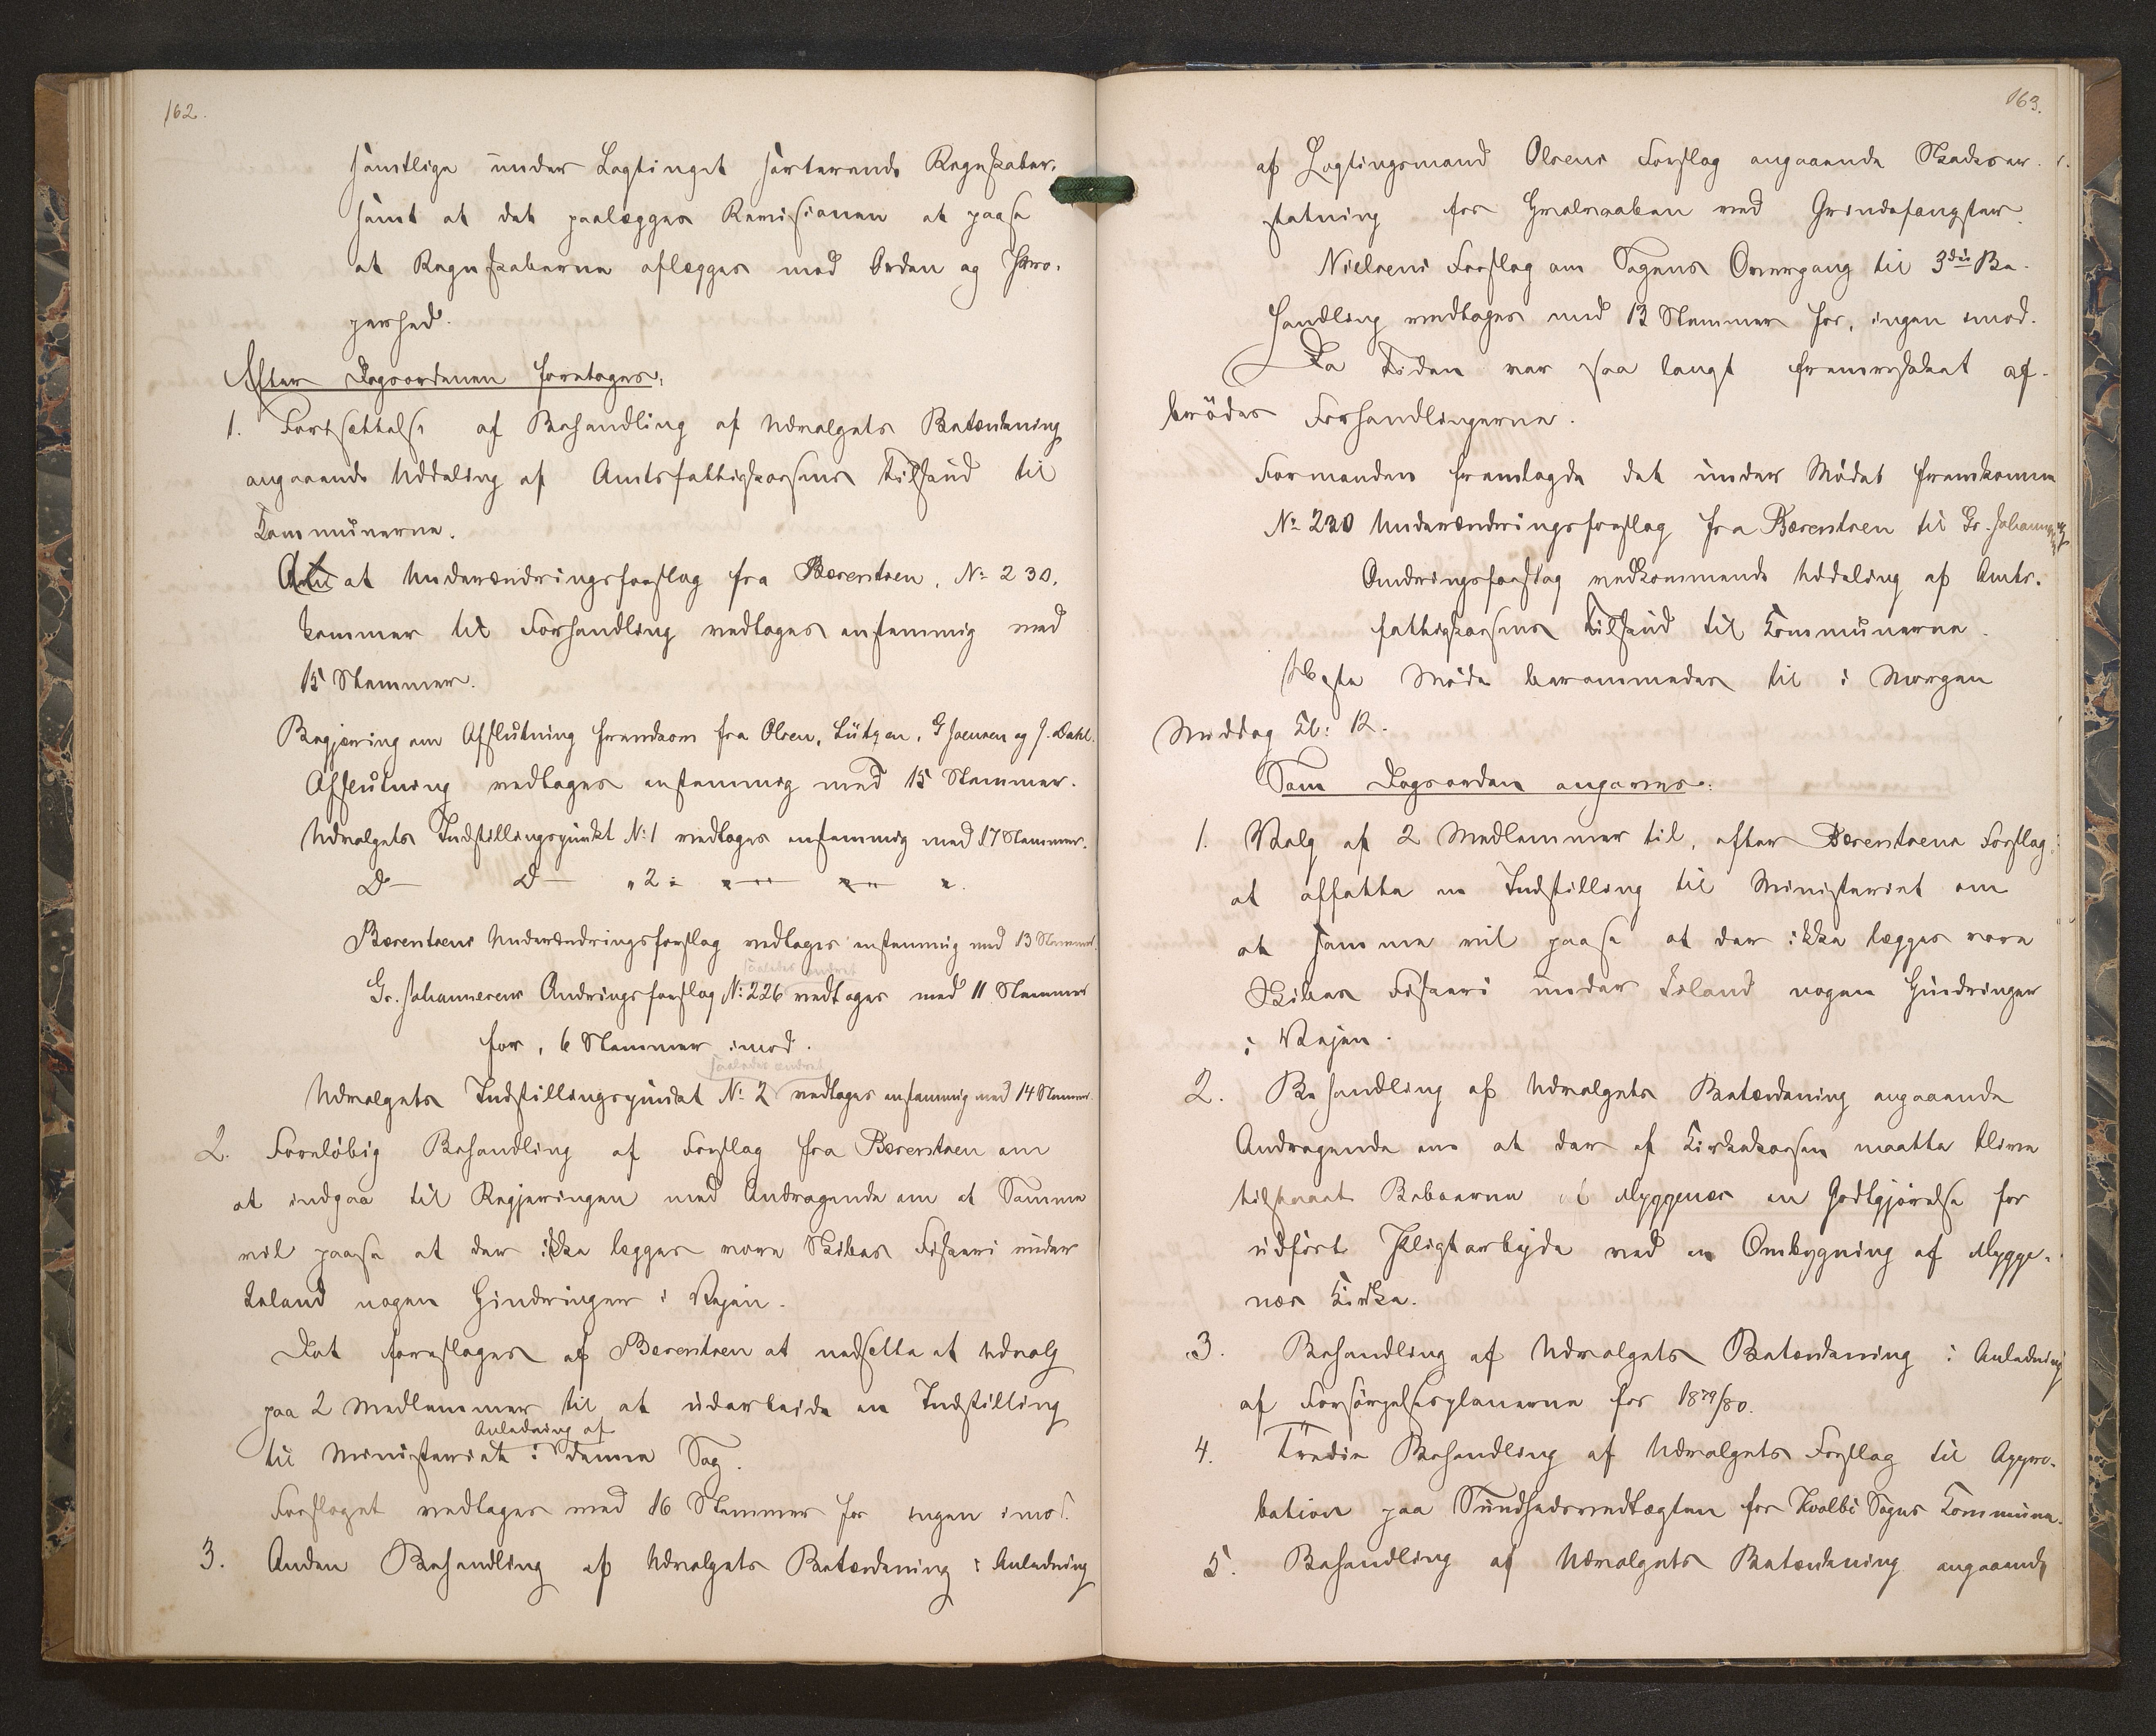 162.
samtlige under Lagtinget sorterende Regnskaber,
samt at det paalægges Revisionen at paase
at Regnskaberne aflægges med Orden og Pro-
perhed.
Efter Dagsordenen foretoges:
1. Fortsættelse af Behandling af Udvalgets Betænkning
angaaende Uddeling af Amtsfattigkassens Tilskud til
Kommunerne.
at Underændringsforslag fra Bærentsen, No 230.
kommer til Forhandling vedtages enstemmig med
15 Stemmer.
Begjæring om Afslutning fremkom fra Olsen, Lützen, G Joensen og J. Dahl.
Afslutning vedtages enstemmig med 15 Stemmer.
Udvalgets Indstillingspunkt No 1 vedtages enstemmig med 17 Stemmer.
D— D— " 2 " — " — " — "
Bærentsens Underændringsforslag vedtages enstemmig med 13 Stemmer.
saaledes ændret
Gr. Johannesens Ændringsforslag No 226 vedtages med 11 Stemmer
for, 6 Stemmer imod.
saaledes ændret
Udvalgets Indstillingspunkt No 2 vedtages enstemmig med 14 Stemmer.
2. Foreløbig Behandling af Forslag fra Bærentsen om
at indgaa til Regjeringen med Andragende om at Samme
vil paase at der ikke lægges vore Skibes Fiskeri under
Island nogen Hindringer i Vejen.
Det foreslages af Bærentsen at nedsætte et Udvalg
paa 2 Medlemmer til at udarbeide en Indstilling
Anledning af
til Ministeriet i denne Sag.
Forslaget vedtages med 16 Stemmer for ingen imod.
3. Anden Behandling af Udvalgets Betænkning i Anledning
163.
af Lagtingsmand Olsens Forslag angaaende Skadeser-
statning for Hvalvaaben ved Grindefangster.
Nielsens Forslag om Sagens Overgang til 3die Be-
handling vedtages med 13 Stemmer for, ingen imod.
Da Tiden var saa langt fremrykket af-
brødes Forhandlingerne.
Formanden fremlagde det under Mødet fremkomne
No 230 Underændringsforslag fra Bærentsen til Gr. Johannesens
Ændringsforslag vedkommende Uddeling af Amts-
fattigkassens Tilskud til Kommunerne.
Næste Møde berammedes til i Morgen
Middag Kl: 12.
Som Dagsorden angaves:
1. Valg af 2 Medlemmer til, efter Bærentsens Forslag,
at affatte en Indstilling til Ministeriet om
at samme vil paase at der ikke lægges vore
Skibes Fiskeri under Island nogen Hindringer
i Vejen.
2. Behandling af Udvalgets Betænkning angaaende
Andragende om at der af Kirkekassen maatte blive
tilstaaet Beboerne af Myggenæs en Godtgjørelse for
udført Pligtarbejde ved en Ombygning af Mygge-
næs Kirke.
3. Behandling af Udvalgets Betænkning i Anledning
af Forsørgelsesplanerne for 1879/80.
4. Tredie Behandling af Udvalgets Forslag til Appro-
bation paa Sundhedsvedtægten for Kvalbø Sogns Kommune.
5. Behandling af Udvalgets Betænkning angaaende